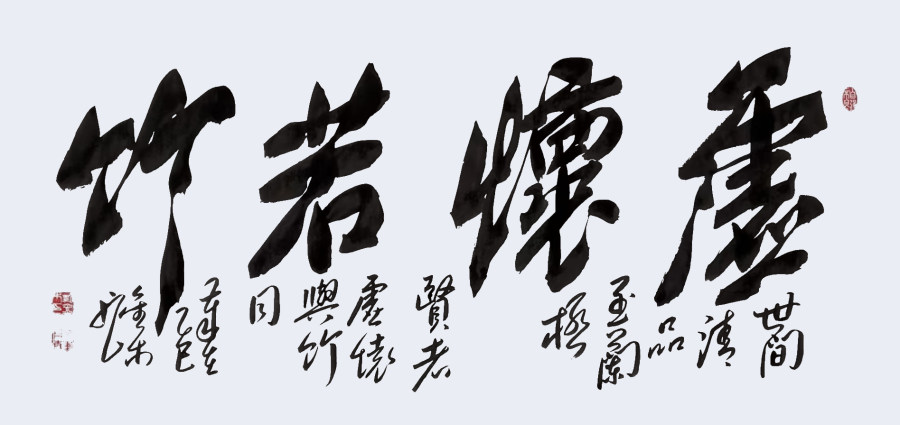 虛懷若竹
世間
清
品
至蘭
極
賢者
虛懷
與竹
同
歲在
乙巳